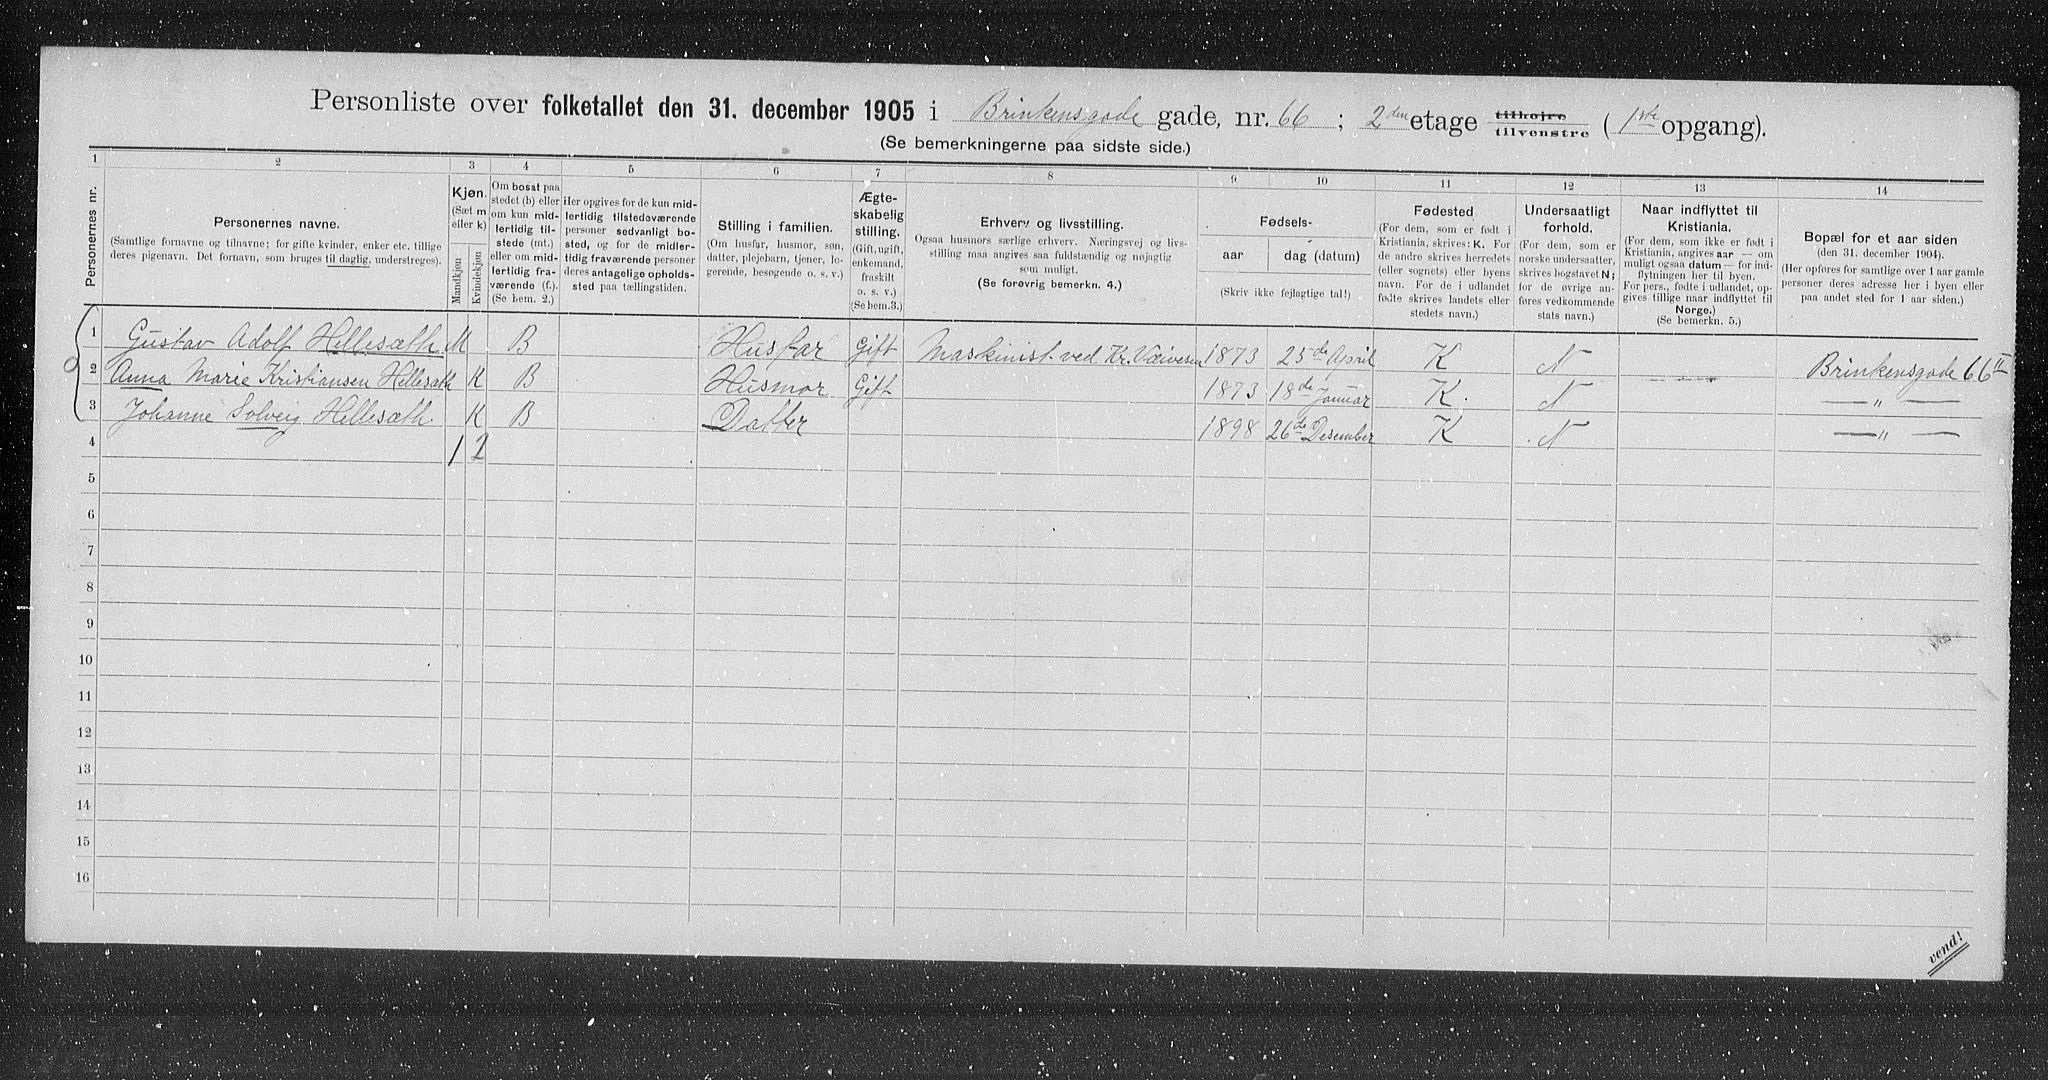 Personliste over folketallet den 31. december 1905 i Brinkensgade gade, nr. 66 ; 2den etage tilhøjre tilvenstre ( 1ste opgang).
(Se bemerkningerne paa sidste side.)
1 2 3 4 5 6 7 8 9 10 11 12 13 14
Personernes nr.
Personernes navne.
(Samtlige fornavne og tilnavne; for gifte kvinder, enker etc. tillige
deres pigenavn. Det fornavn, som bruges til daglig, understreges).
Kjøn.
(Sæt m
eller k)
Mandkjøn
Kvindekjøn
Om bosat paa
stedet (b) eller
om kun mid-
lertidig til-
stede (mt.)
eller om mid-
lertidig fra-
værende (f.).
(Se bem. 2.)
Her opgives for de kun mid-
lertidig tilstedeværende
personer sedvanlig bo-
sted, og for de midler-
tidig fraværende personer
deres antagelige opholds-
sted paa tællingstiden.
Stilling i familien.
(Om husfar, husmor, søn,
datter, plejebarn, tjener, lo-
gerende, besøgende o. s. v.)
Ægte-
skabelig
stilling.
(Gift, ugift,
enkemand,
fraskilt
o. s. v.)
(Se bem.3.)
Erhverv og livsstilling.
Ogsaa husmors særlige erhverv. Næringsvej og livs-
stilling maa angives saa fuldstændig og nøjagtig
som muligt.
(Se forøvrig bemerkn. 4.)
Fødsels-
aar dag (datum)
(Skriv ikke fejlagtige tal!)
Fødested
(For dem, som er født i
Kristiania, skrives: K. For
de andre skrives herredets
(eller sognets) eller byens
navn. For de i udlandet
fødte skrives landets eller
stedets navn.)
Undersaatligt
forhold.
(For dem, som er
norske undersaatter,
skrives bogstavet N;
for de øvrige an-
føres vedkommende
stats navn.)
Naar indflyttet til
Kristiania.
(For dem, som ikke er født i
Kristiania, angives aar — om
muligt ogsaa datum — for ind-
flytningen her til byen.
For pers., fødte i udlandet, op-
gives tillige naar indflyttet til
Norge.)
(Se bemerkn. 5.)
Bopæl for et aar siden
(den 31. december 1904).
(Her opføres for samtlige over 1 aar gamle
personer deres adresse her i byen eller
paa andet sted for 1 aar siden.)
1 Gustav Adolf Hellesæth M B Husfar Gift Maskinist ved Kr. 1873 25de April K N Brinkensgade 66 II
2 Anna Marie Kristiansen Hellesæth K B Husmor Gift 1873 18de Januar K. N — " —
3 Johanne Solveig Hellesæth. K B Datter 1898 26de Desember K N — " —
4 1 2
5
6
7
8
9
10
11
12
13
14
15
16
vend!